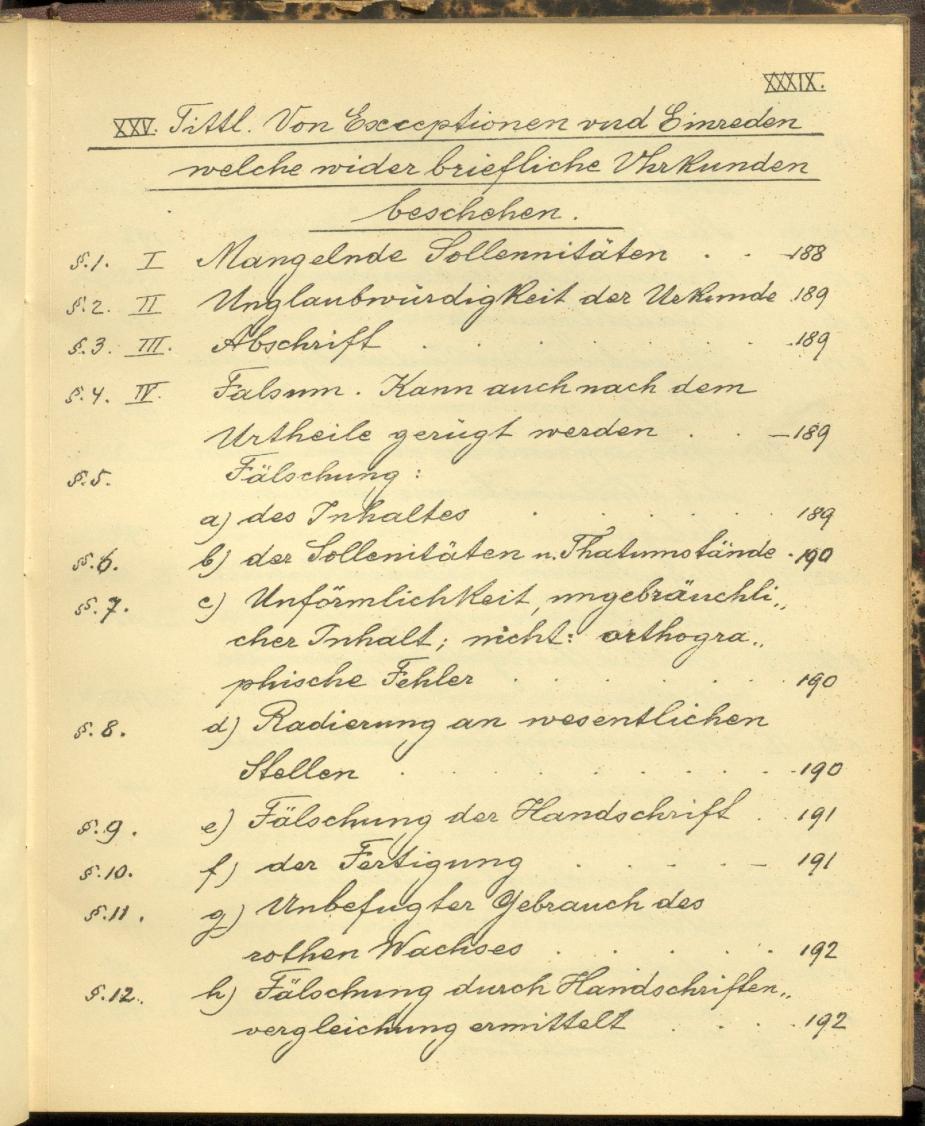 XXXIX.
XXV. Tittl. Von Excceptionen vnd Einreden
welche wider briefliche Vhrkunden
beschehen.
§.1. I Mangelnde Sollennitäten . . 188
§.2. II Unglaubwürdigkeit der Urkunde 189
§.3. III. Abschrift . . . . . . . 189
§.4. IV. Falsum. Kann auch nach dem
Urtheile gerügt werden . . 189
§.5. Fälschung:
a) des Inhaltes . . . . . 189
§.6. b) der Sollenitäten u. Thatumstände . 190
§.7. c) Unförmlichkeit, ungebräuchli„
cher Inhalt; nicht: orthogra„
phische Fehler . . . . . . 190
§.8. d) Radierung an wesentlichen
Stellen . . . . . . . 190
§.9. e) Fälschung der Handschrift . 191
§.10. f) der Fertigung . . . . – 191
§.11. g) Unbefugter Gebrauch des
rothen Wachses . . . . . 192
§.12. h) Fälschung durch Handschriften„
vergleichung ermittelt . . . . 192